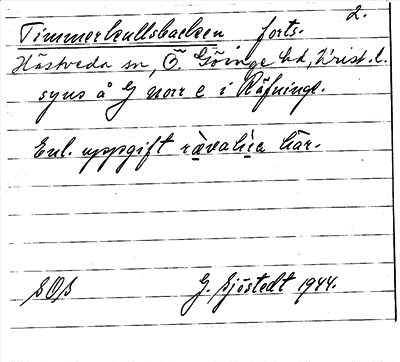 2.
Timmerkullsbacken forts.
Hästveda sn, Ö. Göinge hd, Krist. l.
syns å G norr e i Röfninge.
Enl. uppgift rävalya här.
SOS G. Sjöstedt 1944.